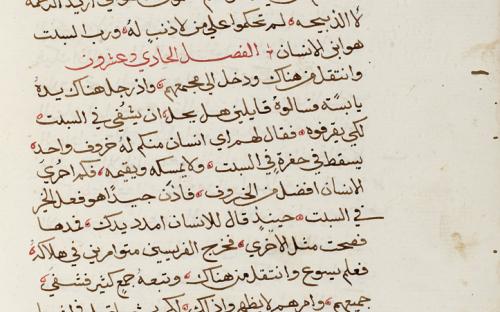 لا الذبيحه لم تحكموا علي من لا ذنب له ورب السبت
هو ابن الانسان الفصل الحادي وعشرون
وانتقل من هناك ودخل الي مجمعهم واذ رجل هناك يده
يابسة فسالوه قايلين هل يحل ان يشفي في السبت
لكي يقرفوه فقال لهم اي انسان منكم له خروف واحد
يسقط في حفرة في السبت ولا يمسكه ويقيمه فكم احري
الانسان افضل من الخروف فاذن جيدا هو فعل الخير
في السبت حينيذ قال للانسان امدد يدك فمدها
فصحت مثل الاخري فخرج الفريسين متوامرين في هلاكه
فعلم يسوع وانتقل من هناك وتبعه جمع كثير فشفي
جميعهم وامرهم لا يظهروا ذلك لكي يتم